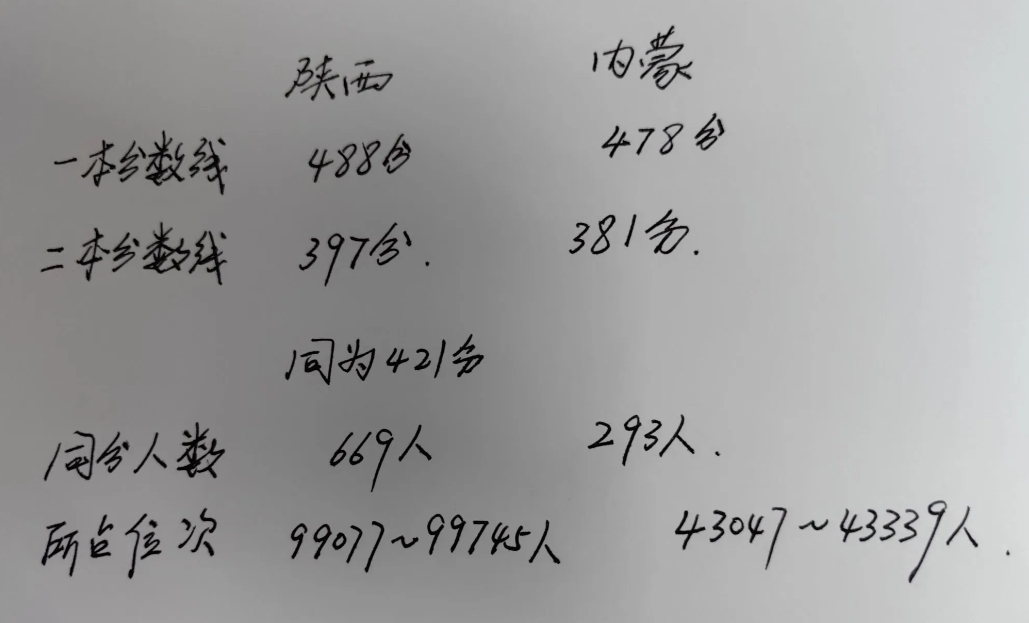 陕西 内蒙
一本分数线 488分 478分
二本分数线 397分. 381分.
同为421分
同分人数 669人 293人.
所占位次 99077~99745人 43047~43339人.